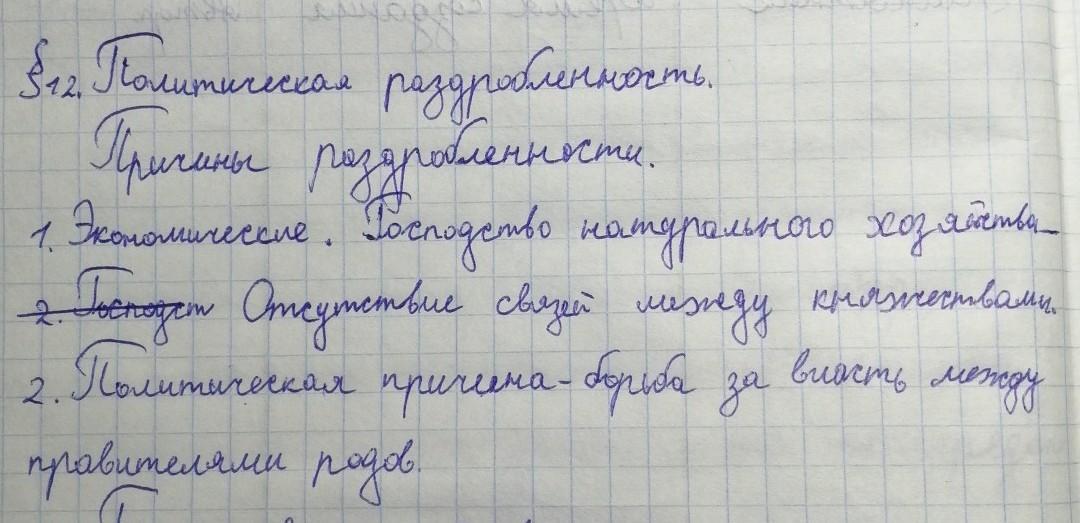 §12. Политическая раздробленность.
Причины раздробленности.
1. Экономические. Господство натурального хозяйства–
2. Господст Отсутствие связей между княжествами.
2. Политическая причина – борьба за власть между
правителями родов.